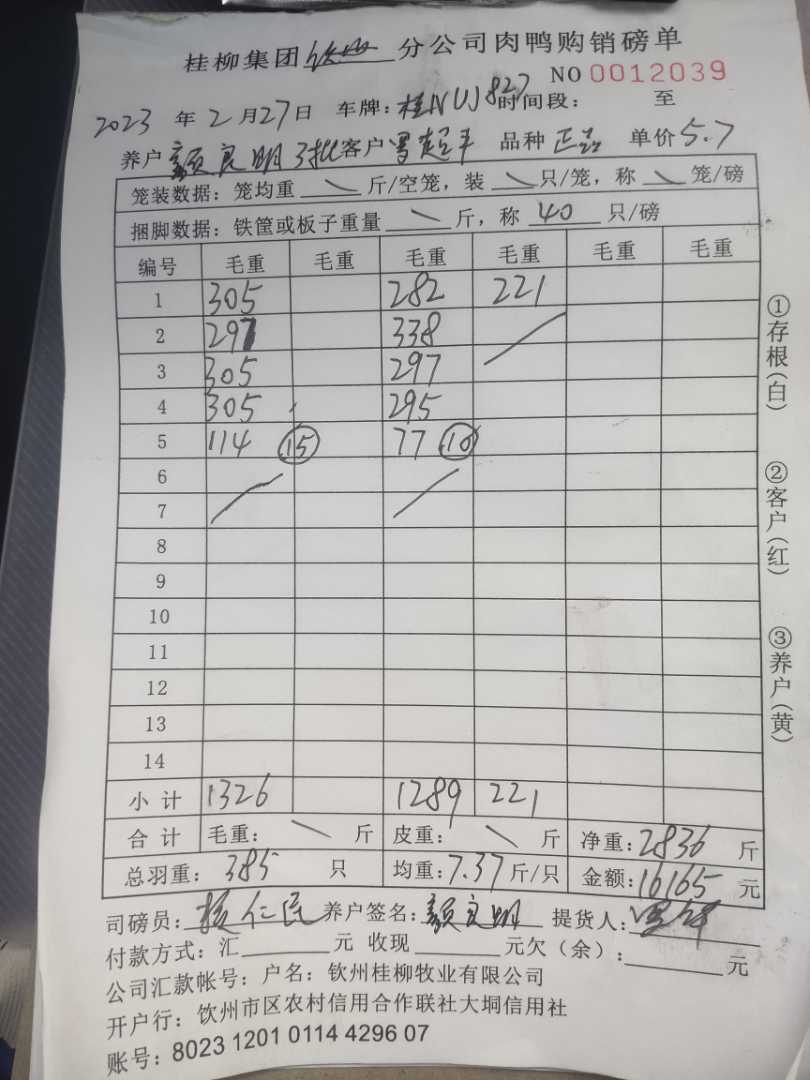 桂柳集团 钦州 分公司肉鸭购销磅单
NO 0012039
2023 年 2 月 27 日 车牌：桂N 827 时间段： 至
养户 颜良明 3批 客户 超 品种 正品 单价 5.7
笼装数据：笼均重 \ 斤/空笼，装 \ 只/笼，称 \ 笼/磅
捆脚数据：铁筐或板子重量 \ 斤，称 40 只/磅
编号 毛重 毛重 毛重 毛重 毛重 毛重
1 305 282 221
2 297 338
3 305 297
4 305 295
5 114 15 77 10
6
7
8
9
10
11
12
13
14
小计 1326 1289 221
合计 毛重： \ 斤 皮重： \ 斤 净重：2836 斤
总羽重： 385 只 均重：7.37 斤/只 金额：16165 元
司磅员：杨仁民 养户签名：颜良明 提货人：
付款方式：汇 元 收现 元欠（余）： 元
公司汇款帐号：户名：钦州桂柳牧业有限公司
开户行：钦州市区农村信用合作联社大垌信用社
账号：8023 1201 0114 4296 07
①存根（白）
②客户（红）
③养户（黄）